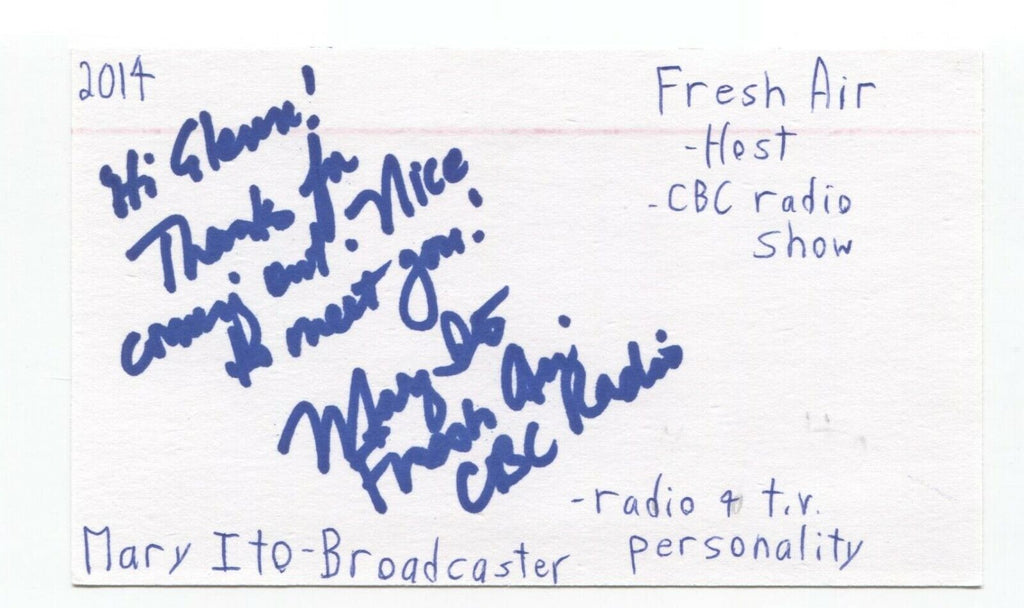 2014
Fresh Air
-Host
-CBC radio
show
Hi Glenn!
Thanks for
coming out. Nice
to meet you!
Mary Ito
Fresh Air
CBC Radio
-radio & t.v.
personality
Mary Ito-Broadcaster